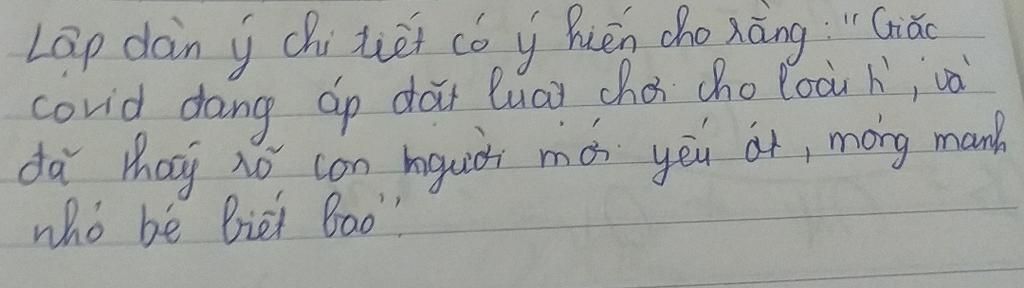 Lập dàn ý chi tiết có ý kiến cho rằng: "Giặc
covid đang áp đặt luật chơi cho loài ng`, và
đã thấy rõ con người mới yếu ớt, mỏng manh
nhỏ bé biết bao".